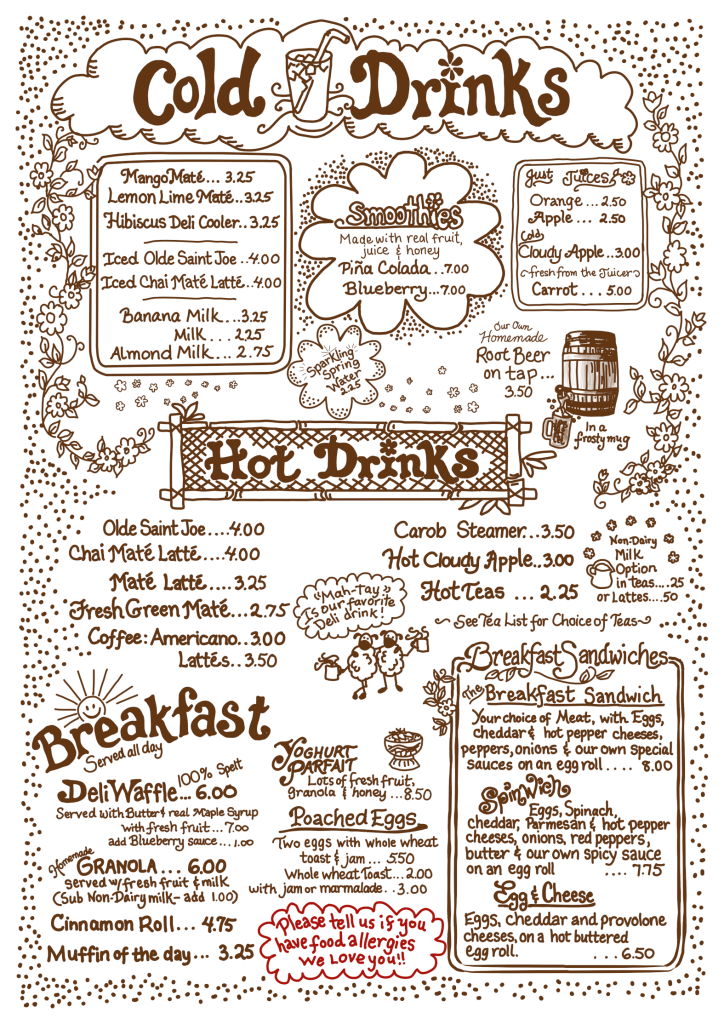 Cold Drinks
Mango Maté... 3.25
Lemon Lime Maté..3.25
Hibiscus Deli Cooler..3.25
Iced Olde Saint Joe..4.00
Iced Chai Maté Latté..4.00
Banana Milk...3.25
Milk... 2.25
Almond Milk... 2.75
Smoothies
Made with real fruit,
juice & honey
Piña Colada...7.00
Blueberry...7.00
Just Juices
Orange... 2.50
Apple... 2.50
Cold
Cloudy Apple..3.00
~fresh from the Juicer~
Carrot... 5.00
Sparkling
Spring
Water
2.25
Our Own
Homemade
Root Beer
on tap...
3.50
In a
frosty mug
Hot Drinks
Olde Saint Joe....4.00
Chai Maté Latté....4.00
Maté Latté.... 3.25
Fresh Green Maté...2.75
Coffee: Americano..3.00
Lattés..3.50
Carob Steamer...3.50
Hot Cloudy Apple..3.00
Hot Teas ... 2.25
~ See Tea List for Choice of Teas~
Non-Dairy
Milk
Option
in teas....25
or Lattes....50
"Mah-Tay"
Is our favorite
Deli drink!
Breakfast
Served all day
100% Spelt
Deli Waffle... 6.00
Served with Butter & real Maple Syrup
with fresh fruit... 7.00
add Blueberry sauce... 1.00
Homemade
GRANOLA... 6.00
served w/ fresh fruit & milk
(Sub Non-Dairy milk- add 1.00)
Cinnamon Roll... 4.75
Muffin of the day... 3.25
Yoghurt
Parfait
Lots of fresh fruit,
granola & honey ...8.50
Poached Eggs
Two eggs with whole wheat
toast & jam ... 5.50
Whole wheat Toast...2.00
with jam or marmalade..3.00
Please tell us if you
have food allergies
We Love you!!
Breakfast Sandwiches
The Breakfast Sandwich
Your choice of Meat, with Eggs,
cheddar & hot pepper cheeses,
peppers, onions & our own special
sauces on an egg roll .... 8.00
Spinwich
Eggs, Spinach,
cheddar, Parmesan & hot pepper
cheeses, onions, red peppers,
butter & our own spicy sauce
on an egg roll .... 7.75
Egg & Cheese
Eggs, cheddar and provolone
cheeses, on a hot buttered
egg roll. ...6.50